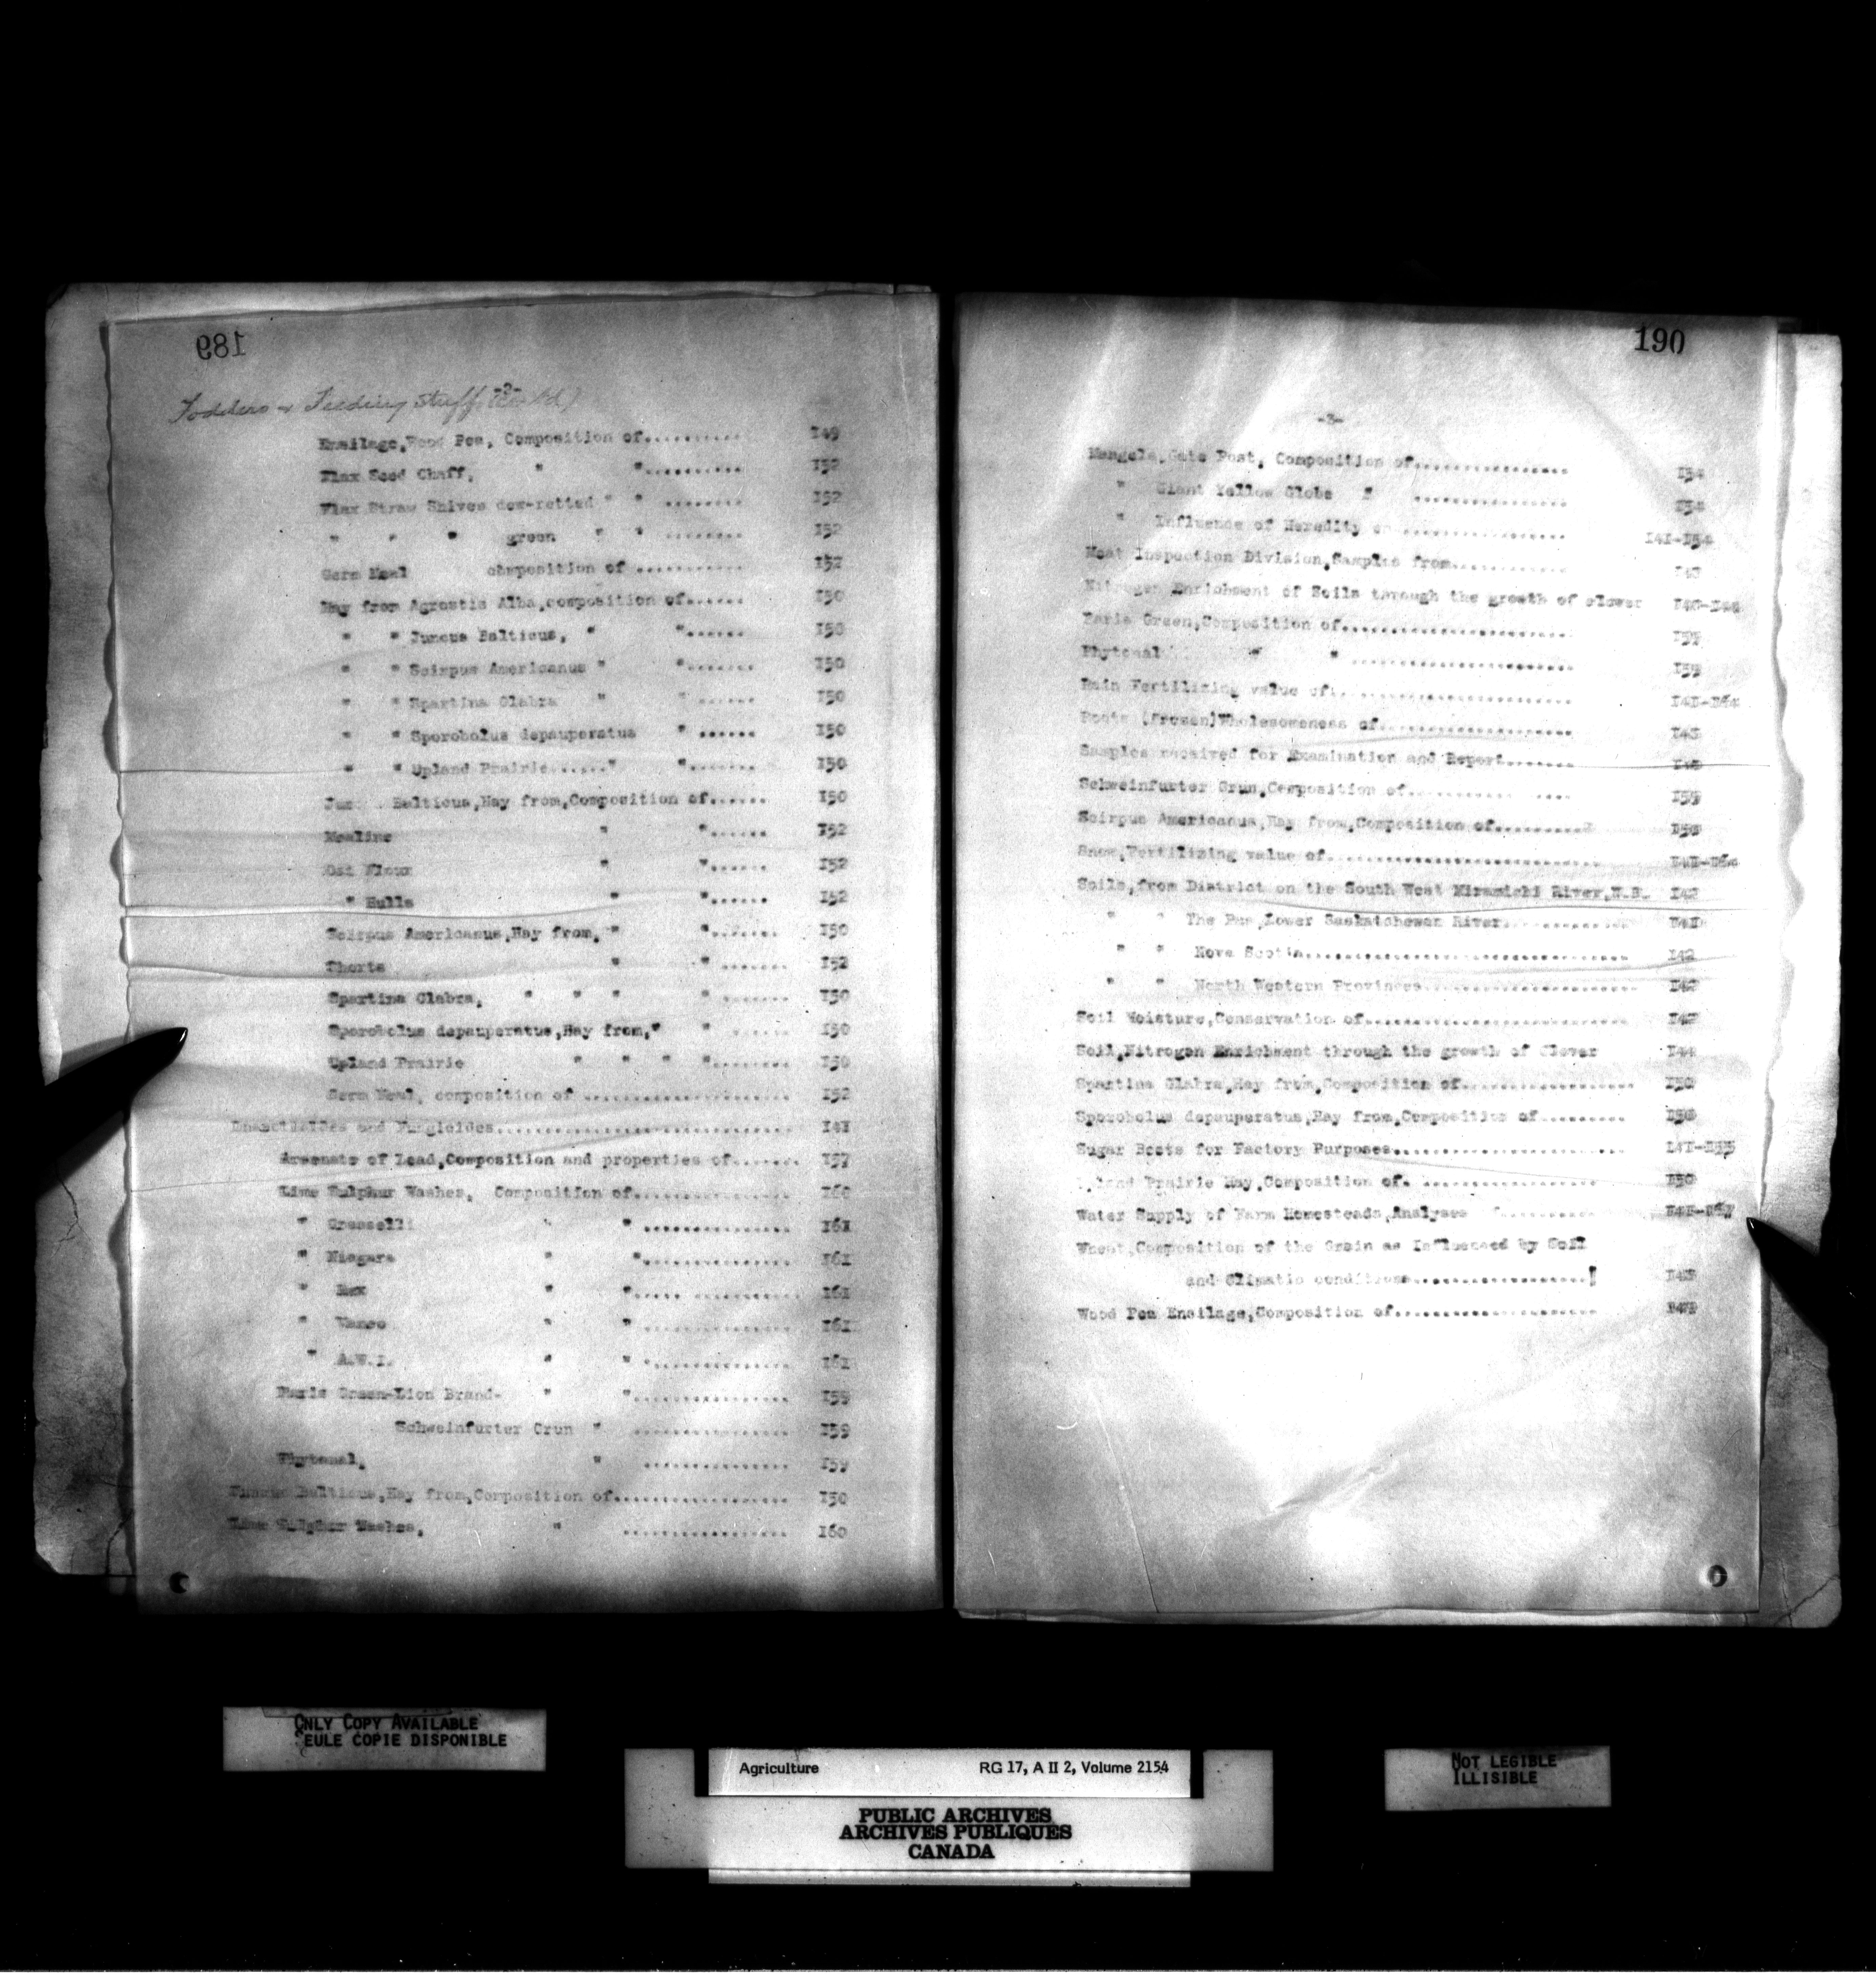 189
Fodders & Feeding Stuffs (Con'td)
-2-
Ensilage, Wood Pea, Composition of........... 149
Flax Seed Chaff, " ".......... 152
Flax Straw Shives dew-retted " " ........ 152
" " " green " " ........ 152
Germ Meal composition of ........... 152
Hay from Agrostis Alba,composition of...... 150
" " Juncus Balticus, " "....... 150
" " Scirpus Americanus " "....... 150
" " Spartina Glabra " " ...... 150
" " Sporobolus depauperatus " ...... 150
" " Upland Prairie......" "....... 150
Balticus,Hay from,Composition of...... 150
Mealine " "...... 152
Oat Flour " "...... 152
" Hulls " "...... 152
Scirpus Americanus,Hay from, " "....... 150
Shorts " " ....... 152
Spartina Glabra, " " " " ....... 150
Sporobolus depauperatus,Hay from," " ...... 150
Upland Prairie " " " "........ 150
Germ Meal, composition of ..................... 152
Insecticides and Fungicides............................. 141
Arsenate of Lead,Composition and properties of....... 157
Lime Sulphur Washes, Composition of................ 160
" Grasselli " " ............... 161
" Niagara " "............... 161
" Rex " "..... .......... 161
" Vanco " " ............... 161
" A.W.I. " " ............... 161
Paris Green-Lion Brand- " "................ 159
Schweinfurter Grun " ................ 159
Phytonal, " ............... 159
Juncus Balticus,Hay from,Composition of.................. 150
Lime Sulphur Washes, " ................. 160
190
-3-
Mangels,Gate Post, Composition of................ 154
" Giant Yellow Globe " ................ 154
" Influence of Heredity on ................ 141-154
Meat Inspection Division,Samples from............ 143
Nitrogen Enrichment of Soils through the growth of clover
Paris Green,Composition of....................... 159
Phytonal " " ....................... 159
Rain Fertilizing value of.
Roots (Frozen)Wholesomeness of................... 143
Samples received for Examination and Report.......
Schweinfurter Grun,Composition of.......... .... 159
Scirpus Americanus,Hay from,Composition of......... 150
Snow,Fertilizing value of...........................
Soils,from District on the South West Miramichi River,N.B. 142
" " The Pas,Lower Saskatchewan River.............
" " Nova Scotia................................ 142
" " North Western Provinces..................... 142
Soil Moisture,Conservation of.......................... 142
Soil,Nitrogen Enrichment through the growth of Clover 144
Spartina Glabra,Hay from,Composition of................ 150
Sporobolus depauperatus,Hay from,Composition of......... 150
Sugar Beets for Factory Purposes....................... 141-155
Upland Prairie Hay,Composition of. ................. 150
Water Supply of Farm Homesteads,Analyses ..........
Wheat,Composition of the Grain as Influenced by Soil
and Climatic conditions.....................
Wood Pea Ensilage,Composition of.................... 149
ONLY COPY AVAILABLE
SEULE COPIE DISPONIBLE
Agriculture RG 17, A II 2, Volume 2154
PUBLIC ARCHIVES
ARCHIVES PUBLIQUES
CANADA
NOT LEGIBLE
ILLISIBLE